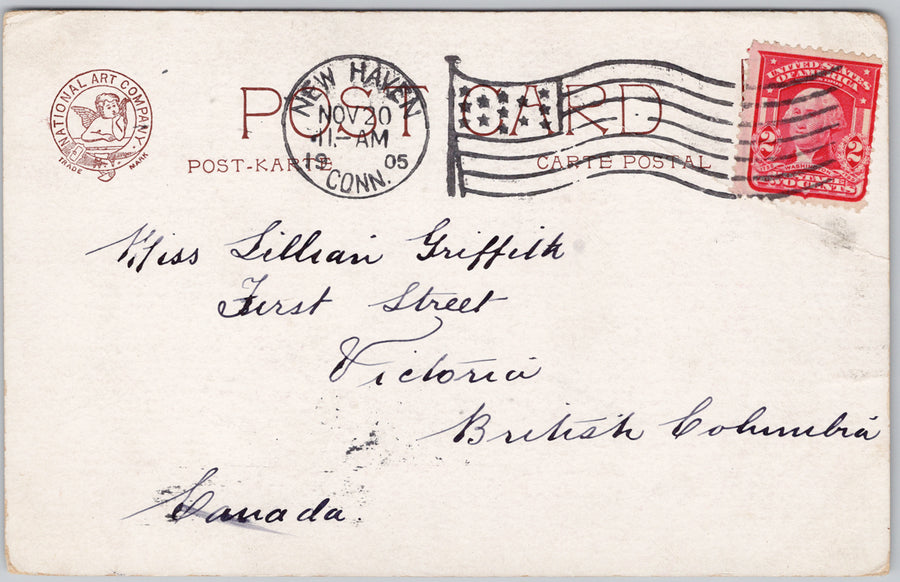 NATIONAL ART COMPANY.
TRADE MARK
POST CARD
POST-KARTE
CARTE POSTAL
NEW HAVEN
NOV 20
11-AM
19 05
CONN.
UNITED STATES
OF AMERICA
2 2
WASHINGTON
TWO CENTS
Miss Lillian Griffith
First Street
Victoria
British Columbia
Canada.